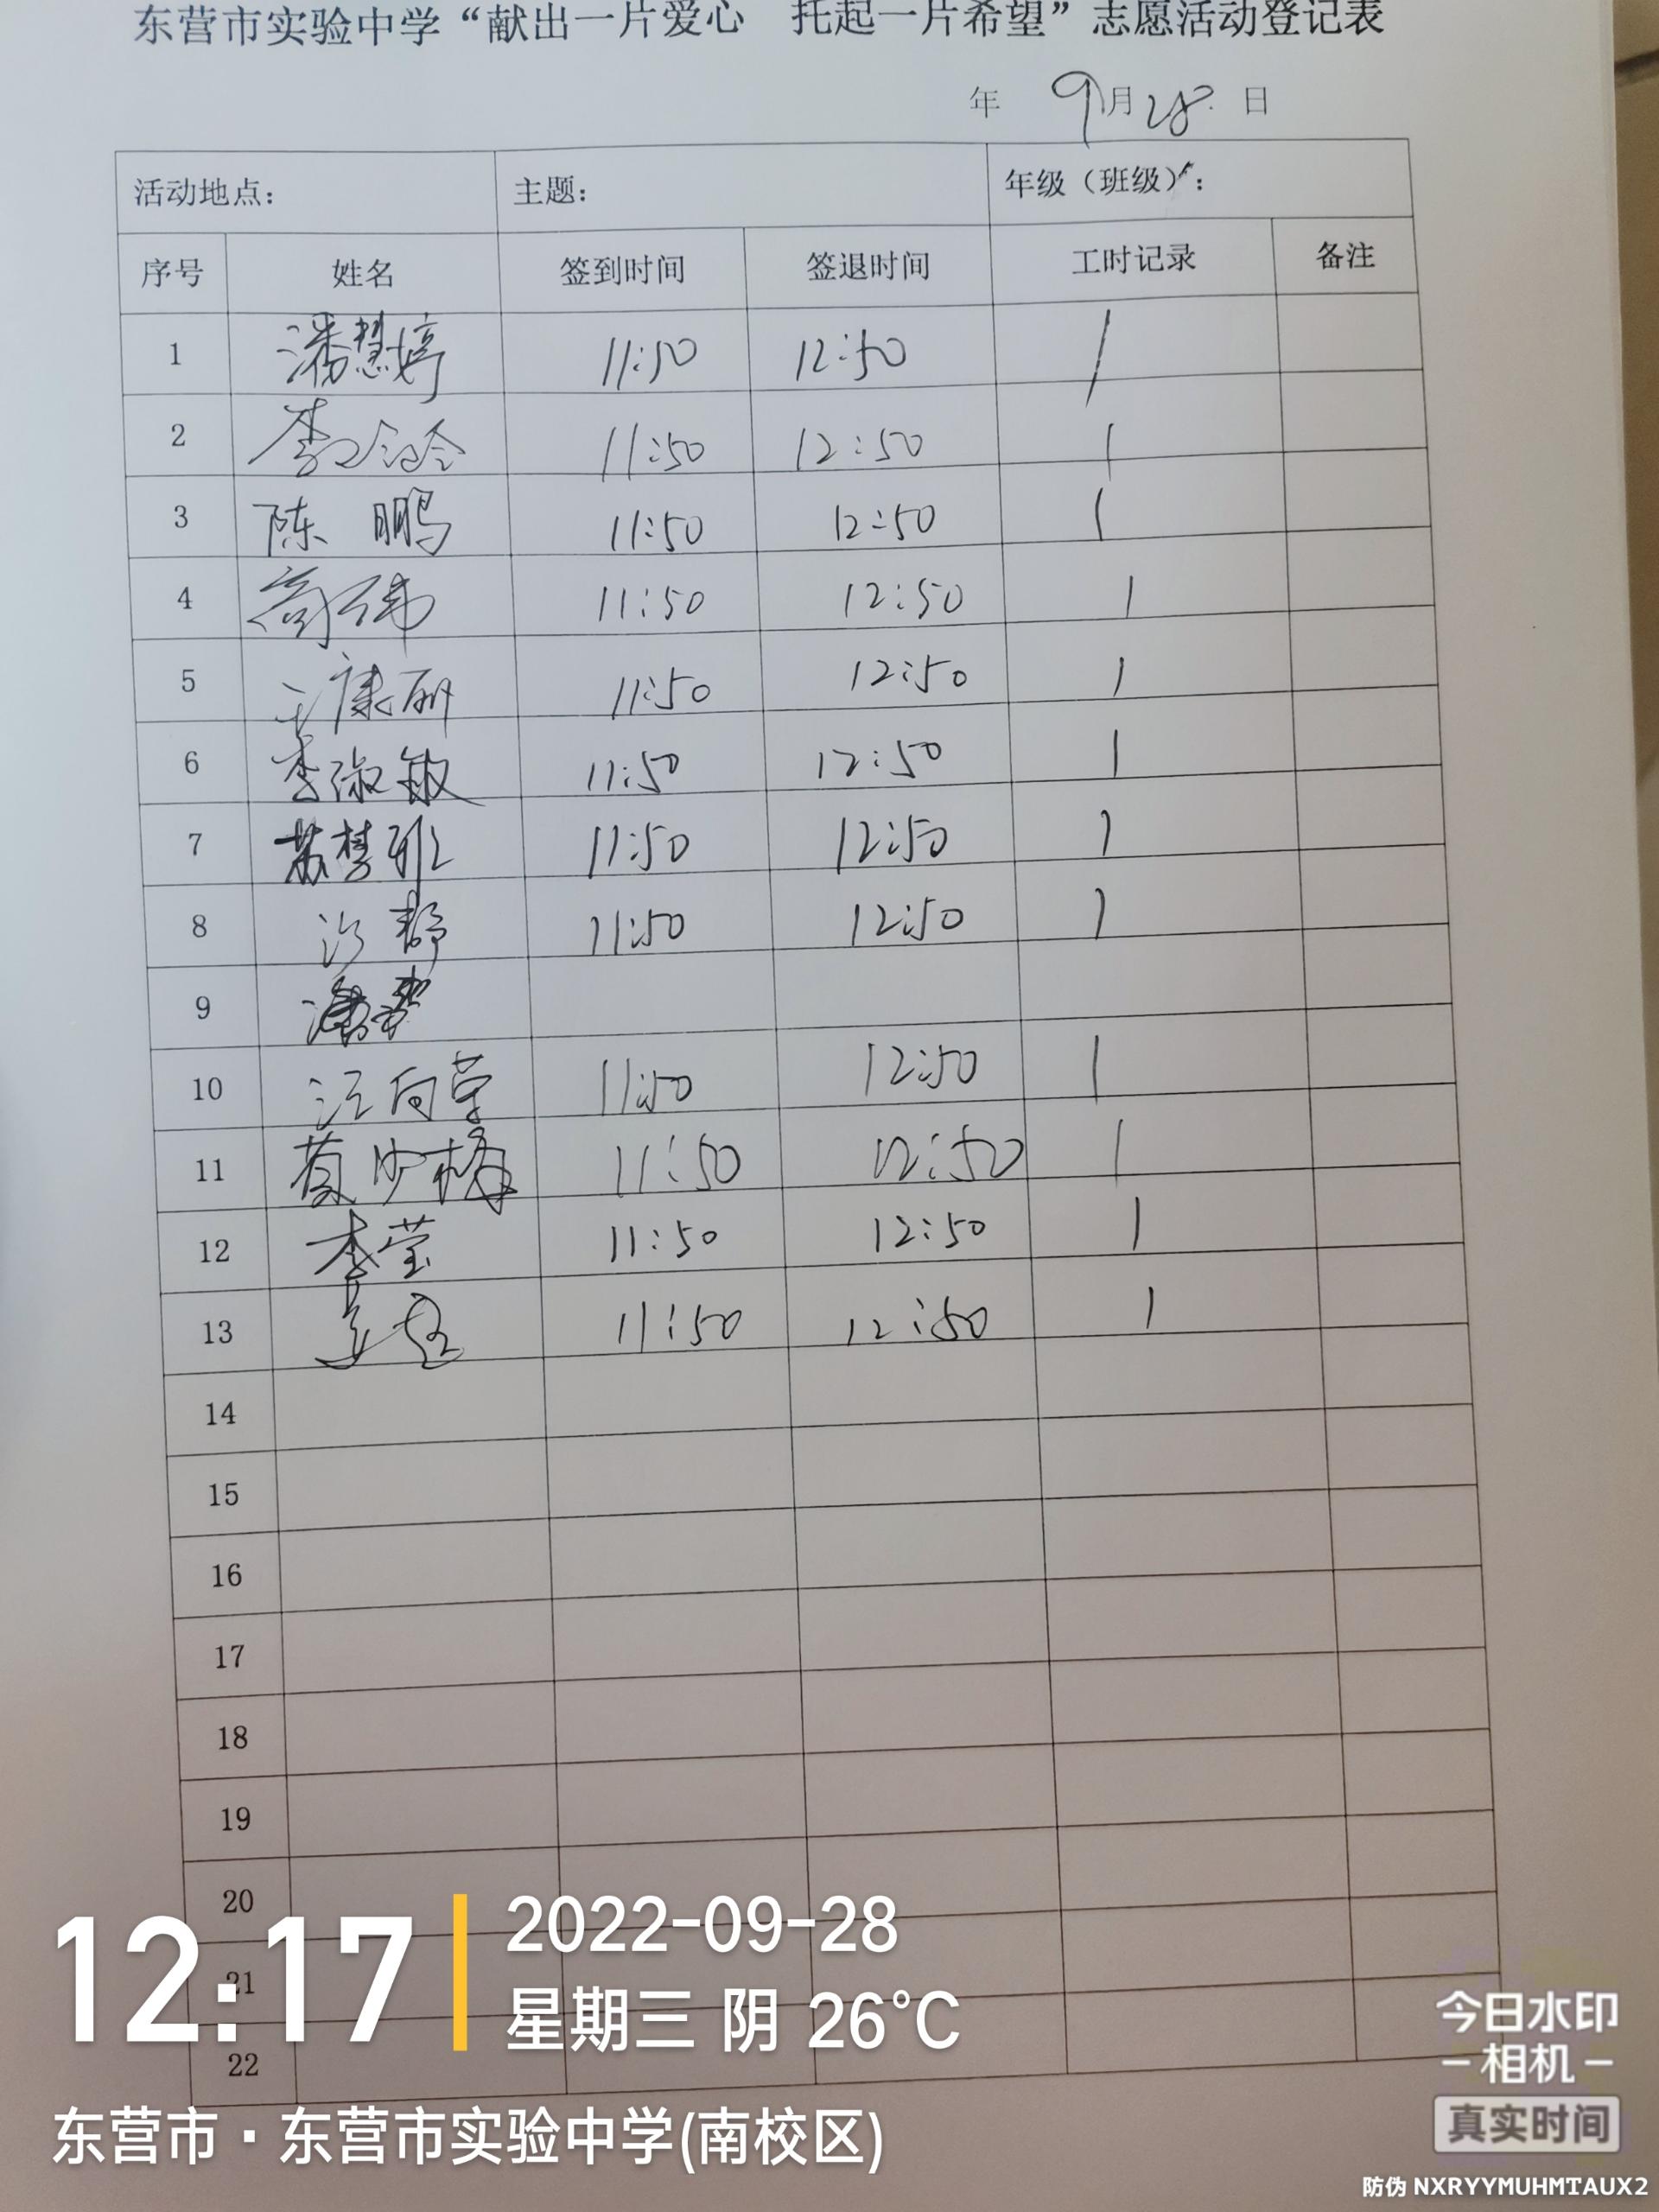 东营市实验中学“献出一片爱心 托起一片希望”志愿活动登记表
年 9月28日
活动地点： 主题： 年级（班级）：
序号 姓名 签到时间 签退时间 工时记录 备注
1 潘慧婷 11:50 12:50 1
2 李 11:50 12:50 1
3 陈鹏 11:50 12:50 1
4 商伟 11:50 12:50 1
5 王康丽 11:50 12:50 1
6 李淑敏 11:50 12:50 1
7 苏梦雅 11:50 12:50 1
8 许静 11:50 12:50 1
9
10 汪向荣 11:50 12:50 1
11 黄少梅 11:50 12:50 1
12 李莹 11:50 12:50 1
13 11:50 12:50 1
14
15
16
17
18
19
20
21
22
12:17
2022-09-28
星期三 阴 26°C
东营市·东营市实验中学(南校区)
今日水印
相机
真实时间
防伪 NXRYYMUHMTAUX2